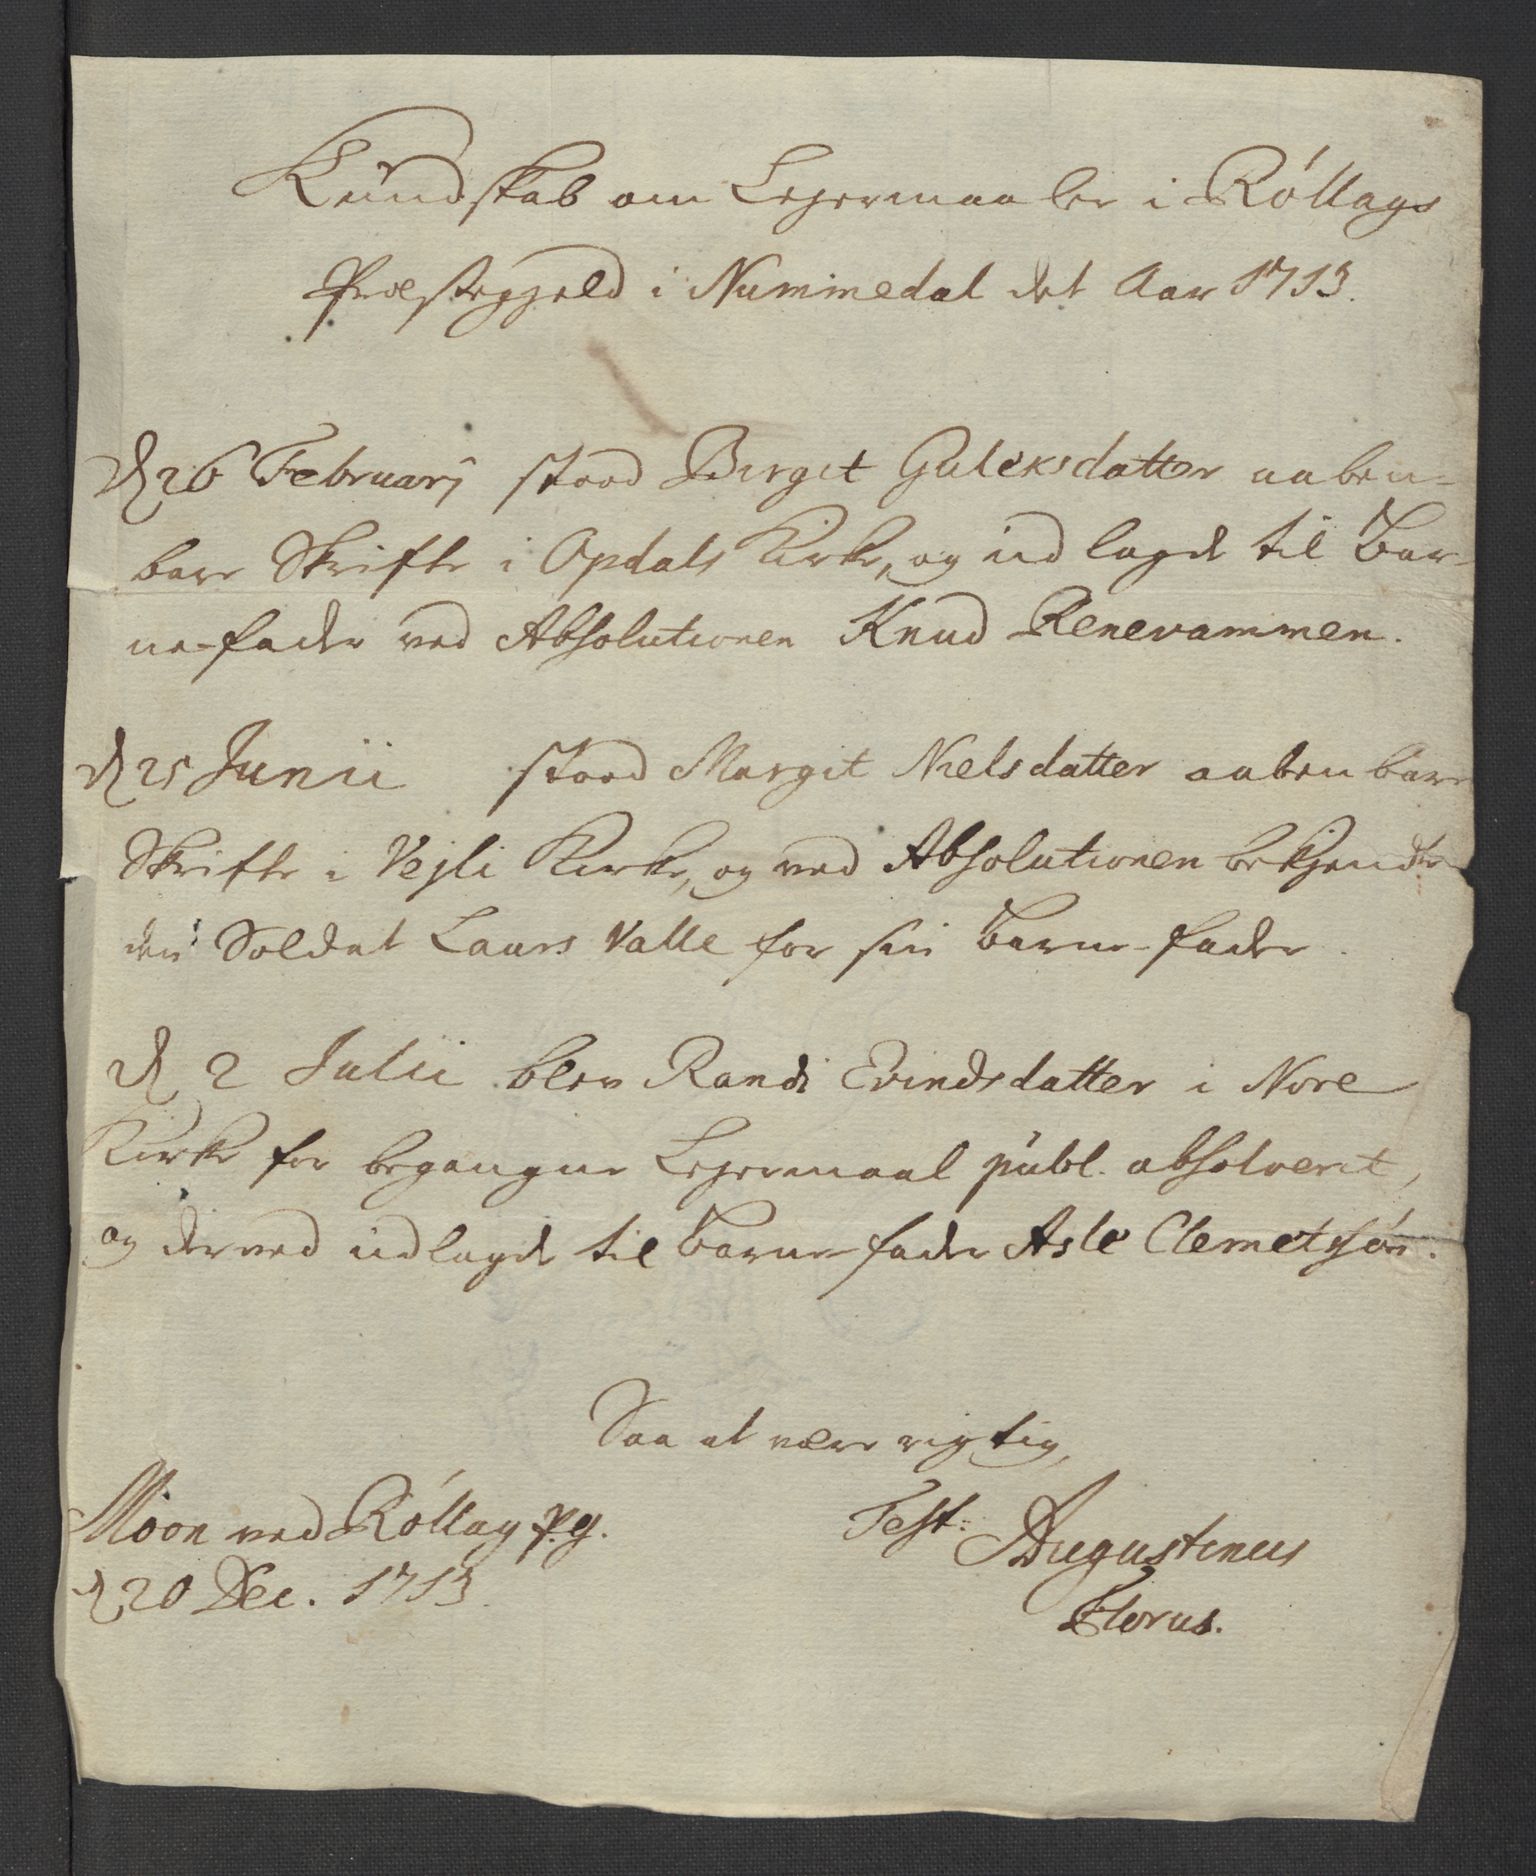 Kundskab om Lejermaaler i Rollags
Præstegjeld i Nummedal det Aar 1713.
d 26 Februarj stood Birgit Guleksdatter aaben-
bare Skrifte i Opdals Kirke, og udlagde til Bar-
ne-fader ved Absolutionen Knud Renevammen.
d 25 Junii stood Margit Nielsdatter aabenbare
Skrifte i Vejli Kirke, og ved Absolutionen bekjendte
den Soldat Laurs Valle for sin Barne-fader.
d 2 Julii blev Randi Evindsdatter i Nore
Kirke for begangne Lejermaal publ. absolverit,
og derved udlagde til Barnefader Asle Clemetsøn.
Saa at være rigtig,
Test: Augustinus
Florus.
Moon ved Rollag pg.
d 20 Dec. 1713.